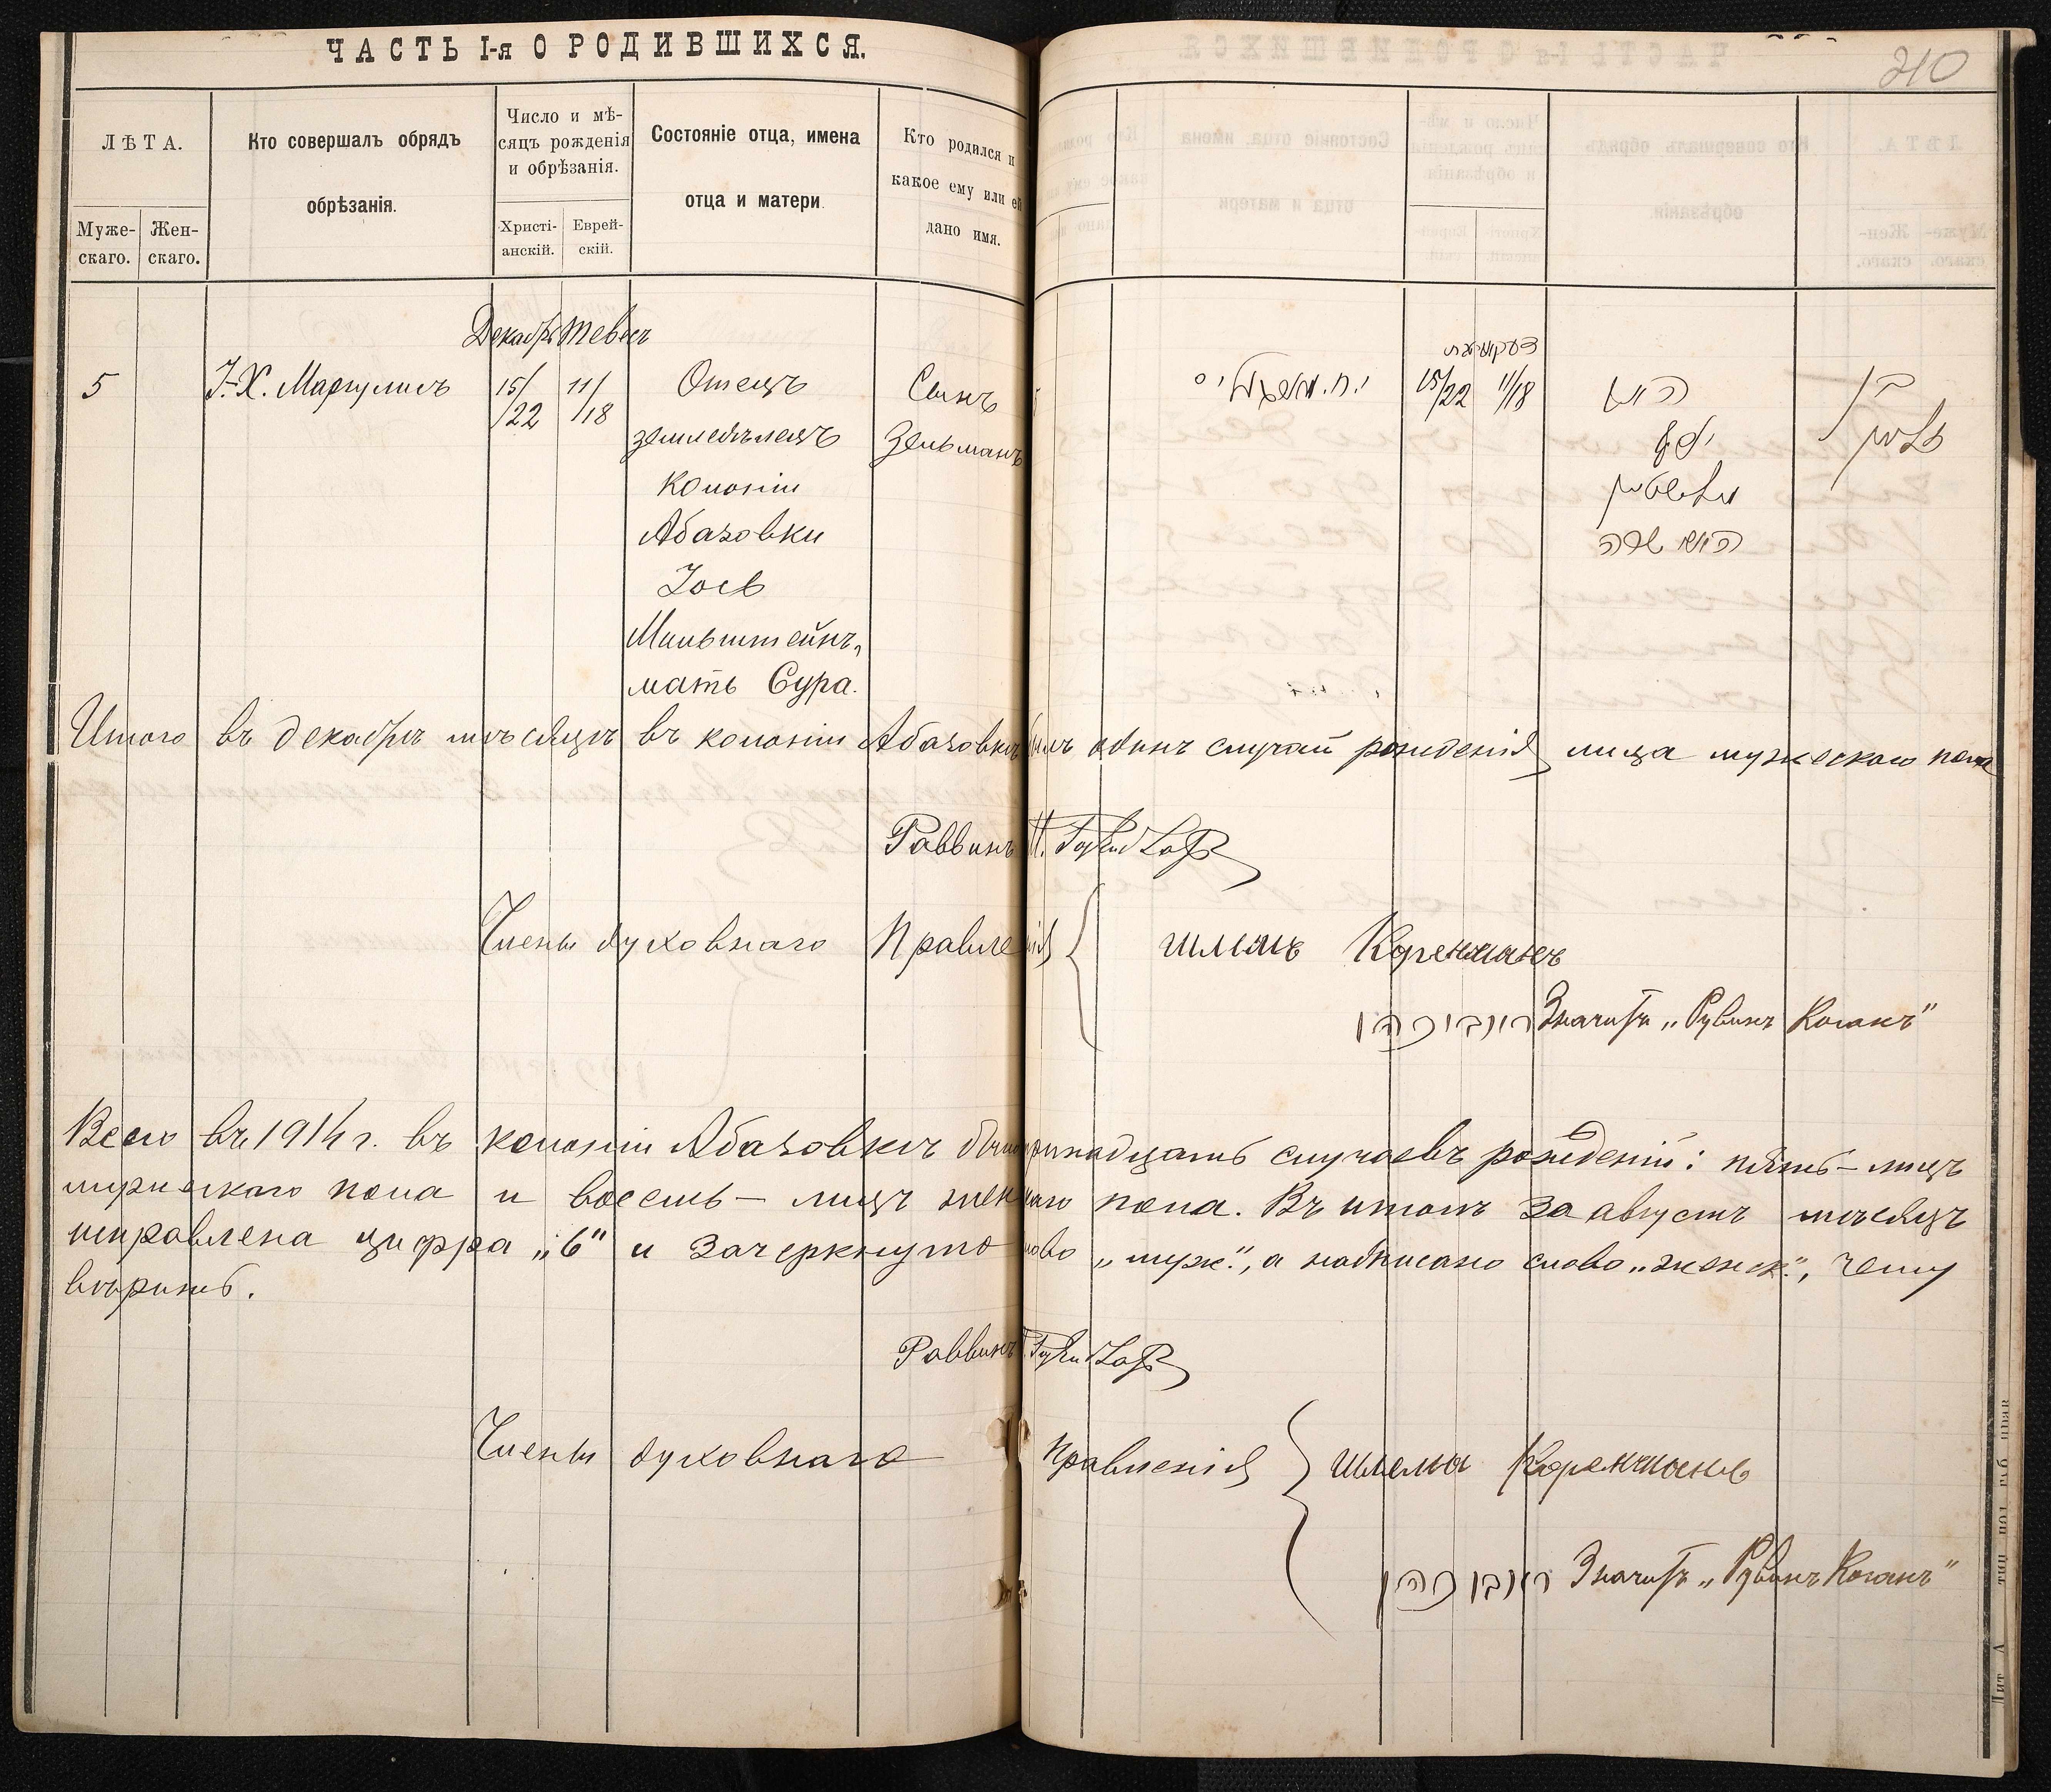 ЧАСТЬ I-я О РОДИВШИХСЯ.
210
ЛѢТА.
Муже-
скаго.
Жен-
скаго.
Кто совершалъ обрядъ
обрѣзанія.
Число и мѣ-
сяцъ рожденія
и обрѣзанія.
Христі-
анскій.
Еврей-
скій.
Состояніе отца, имена
отца и матери.
Кто родился и
какое ему или ей
дано имя.
Декабрь Тевесъ
5 І-Х. Маргулисъ 15/22 11/18 Отецъ
земледѣлецъ
колоніи
Абазовки
Іось
Мильштейнъ,
мать Сура.
Сынъ
Зельманъ
י. ח. מארגאליס
15/22 11/18
האב
יוסף
מילשטיין
האם שרה
בן
זלמן
Итого въ декабрѣ мѣсяцѣ въ колоніи Абазовкѣ былъ одинъ случай рожденія лица мужескаго пола
Раввинъ
Члены духовнаго Правленія { Шлема Коренманъ
ראובן כהן Значитъ „Рувинъ Коганъ"
Всего въ 1914 г. въ колоніи Абазовкѣ было тринадцать случаевъ рожденій: пять – лицъ
мужескаго пола и восемь – лицъ женскаго пола. Въ итогѣ за августъ мѣсяцъ
исправлена цифра „6" и зачеркнуто слово „муж.", а надписано слово „женск.", чему
вѣрить.
Раввинъ
Члены духовнаго Правленія } Шлема
ראובן כהן Значитъ „Рувинъ Коганъ"